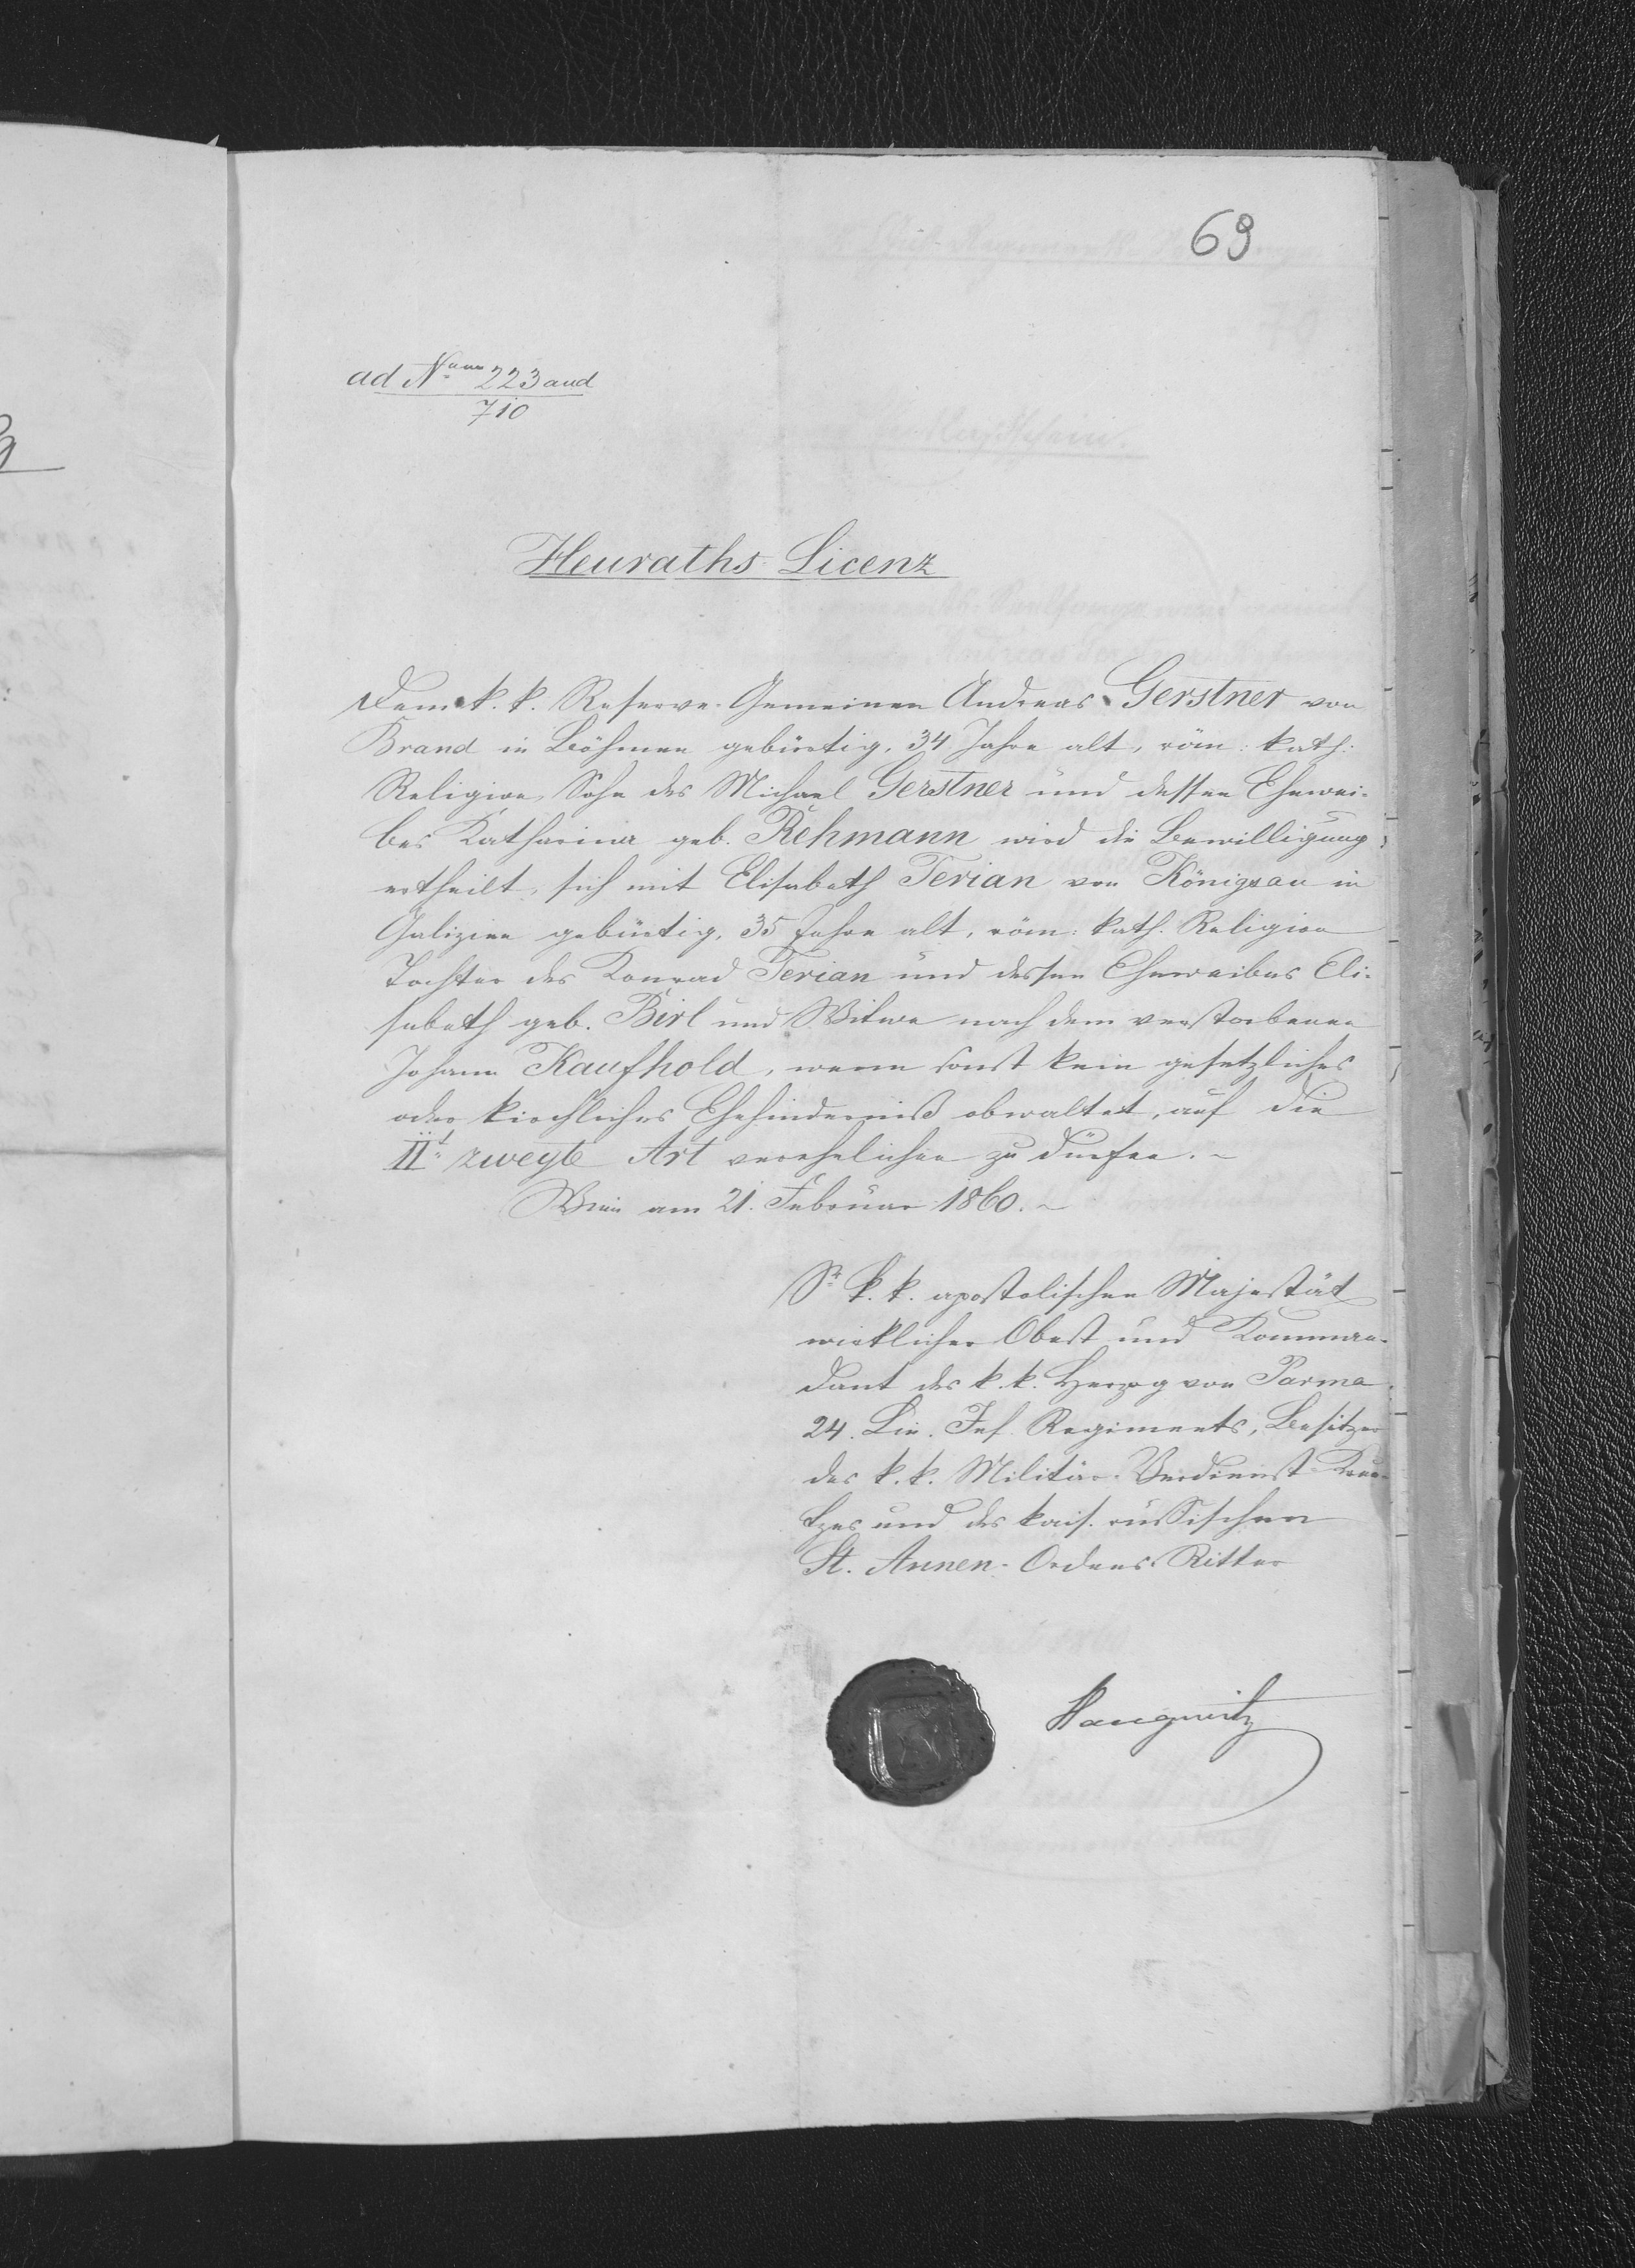 69
ad Num 223 aud
710
Heuraths-Licenz
Dem k. k. Reserve-Gemeinen Andreas Gerstner von
Brand in Böhmen gebürtig, 34 Jahre alt, röm: kath:
Religion, Sohn des Michael Gerstner und dessen Ehewei-
bes Katharina geb. Rehmann wird die Bewilligung
ertheilt, sich mit Elisabeth Terian von Königsau in
Galizien gebürtig, 35 Jahre alt, röm: kath. Religion
Tochter des Konrad Terian und dessen Eheweibes Eli-
sabeth geb. Birl und Witwe nach dem verstorbenen
Johann Kaufhold, wenn sonst kein gesetzliches
oder kirchliches Ehehinderniß obwaltet, auf die
IIt zweyte Art verehelichen zu dürfen. ~
Wien am 21. Februar 1860. ~
Sr k. k. apostolischen Majestät
wirklicher Oberst und Komman-
dant des k. k. Herzog von Parma
24. Lin. Inf. Regiments, Besitzer
des k. k. Militär-Verdienst-Kreu-
tzes und des kais. russischen
St. Annen-Ordens Ritter
Haugwitz